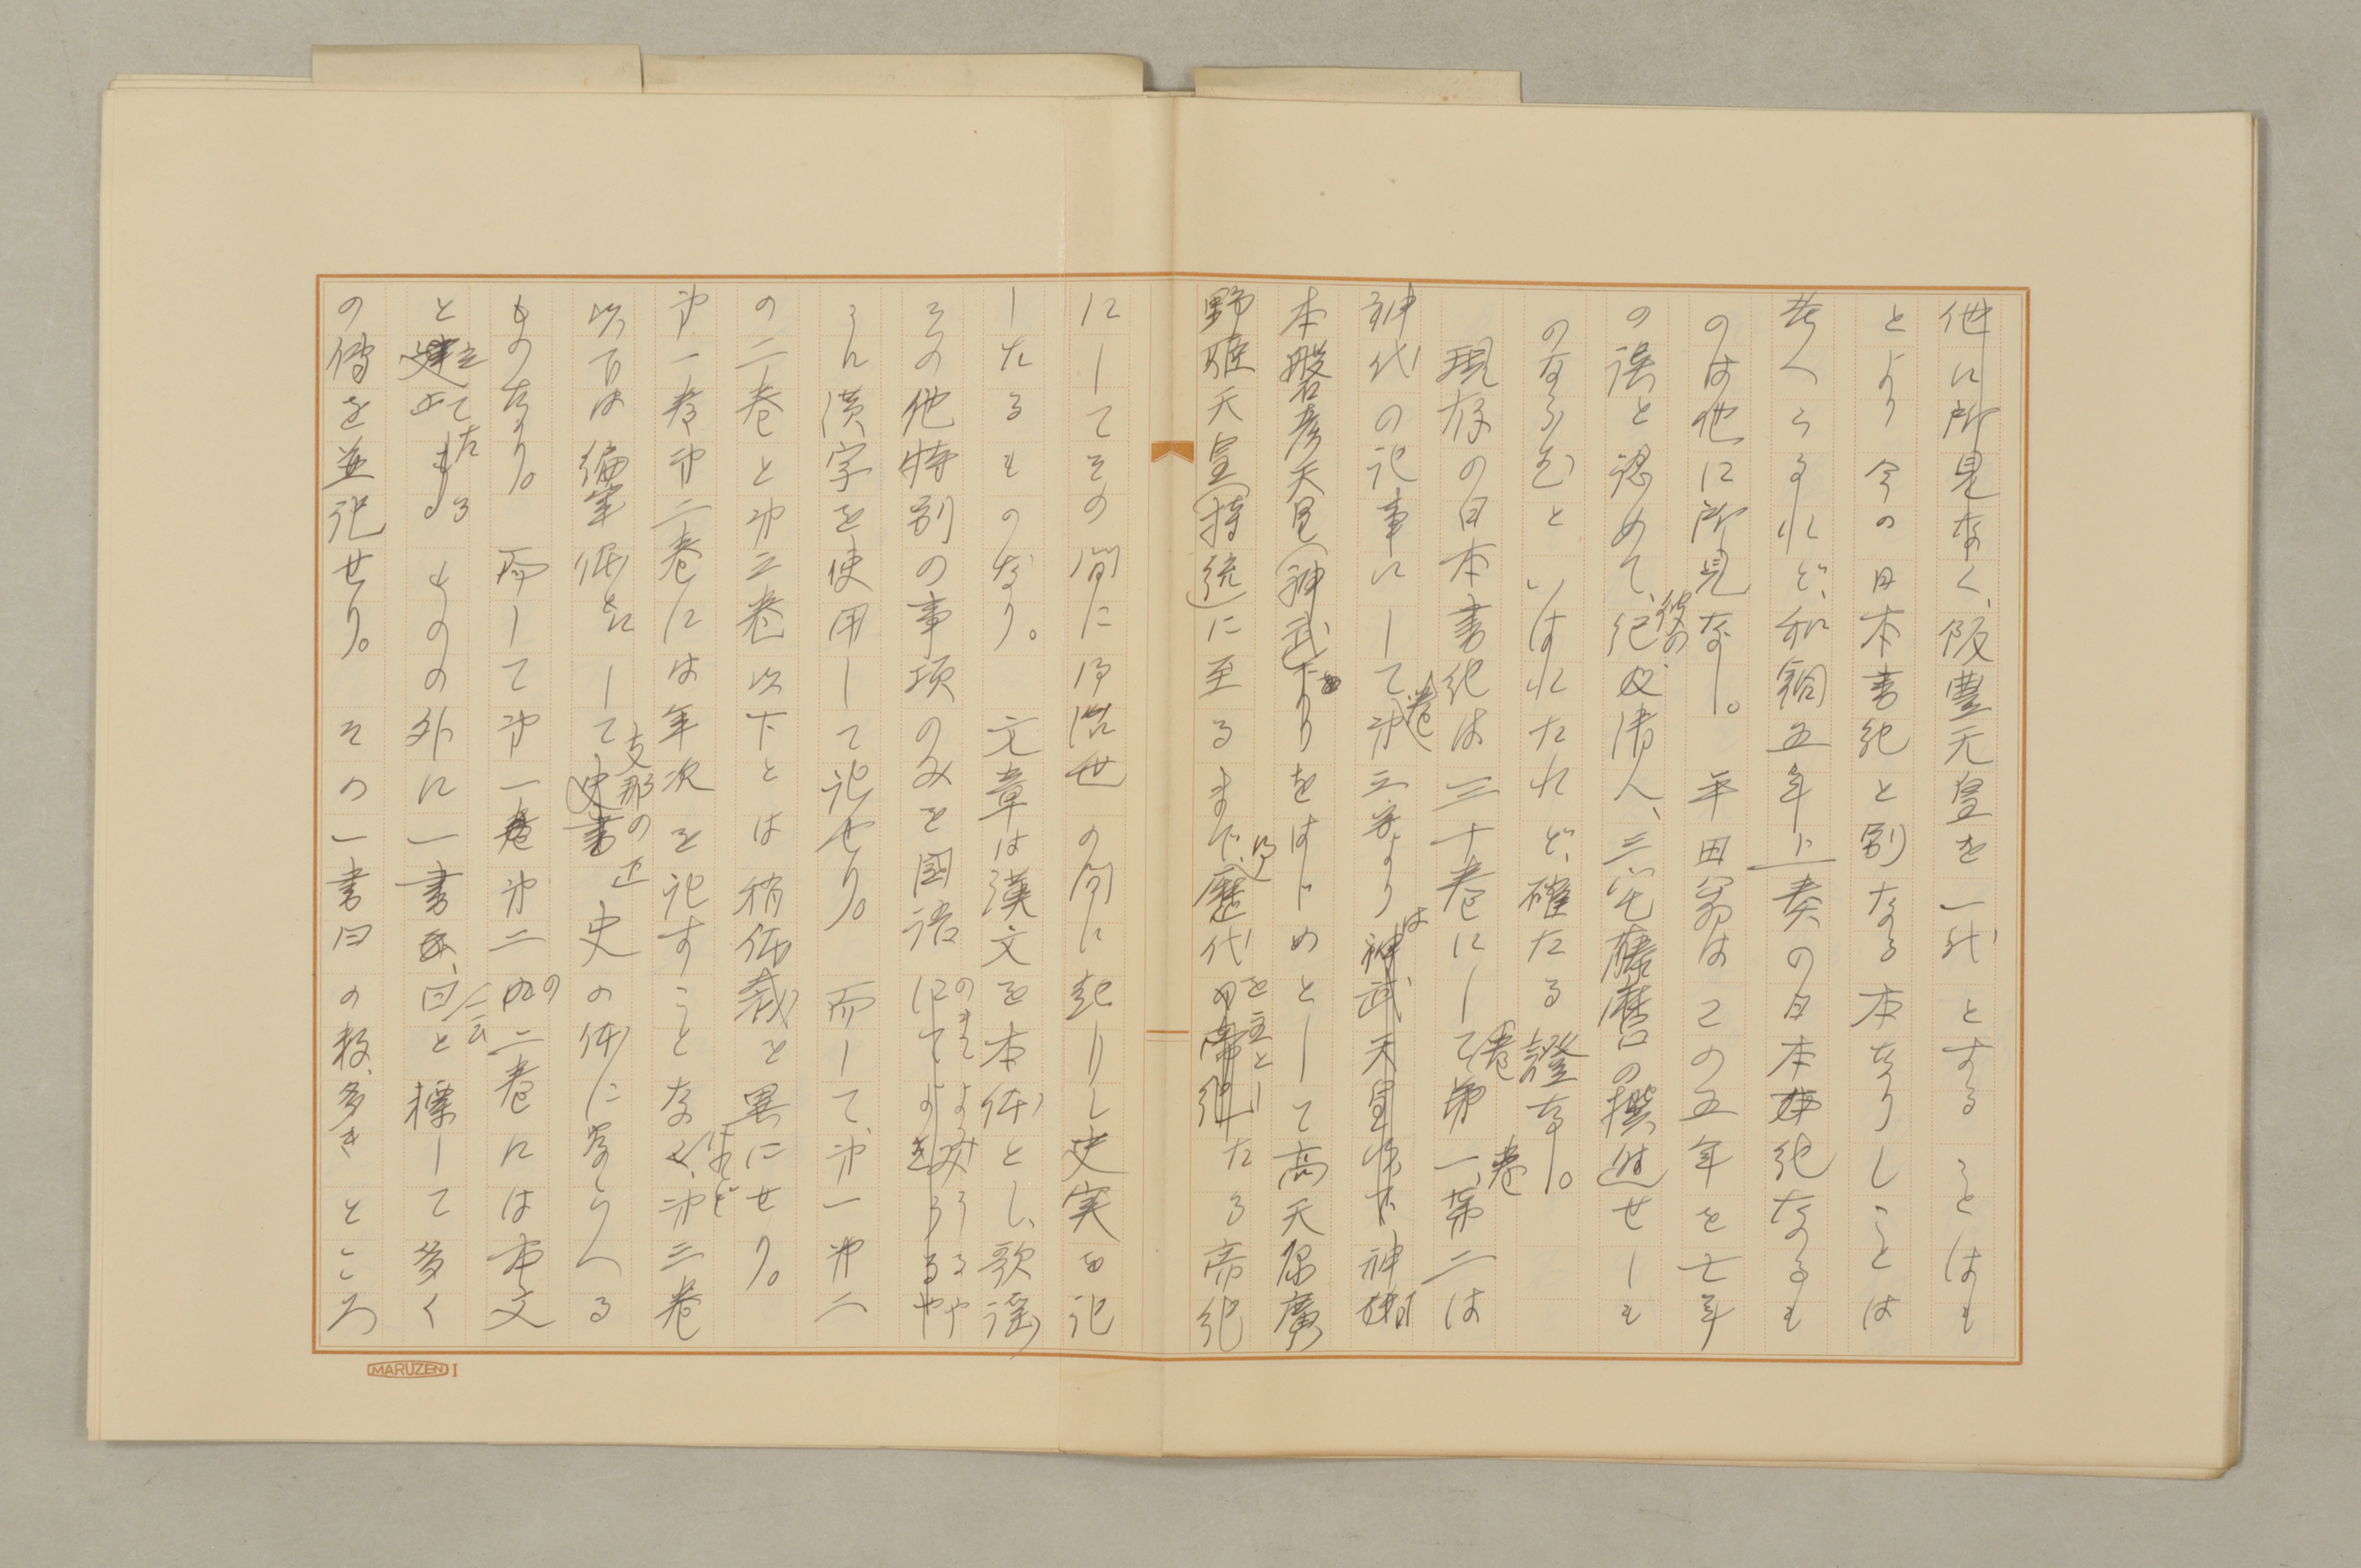 他に所見なく、飯豊天皇を一代とすることはも
とより今の日本書紀と別なる本なりしことは
考へらるれど、和銅五年上奏の日本紀なるも
のは他に所見なし。平田翁はこの五年を七年
の誤と認めて、彼の紀清人、三宅藤麿の撰進せしも
のならむといはれたれど、確たる證なし。
現存の日本書紀は三十巻にして巻第一、巻第二は
神代の記事にして巻第三よりは神武天皇以下、神日
本磐余彦天皇(神武)をはじめとして高天原廣
野姫天皇(持統)に至るまで、歴代を主としたる帝紀
にしてその間に治世の間に起りし史実を記
したるものなり。文章は漢文を本体とし、歌謡
その他特別の事項のみを國語のまゝよみうるや
うに漢字を使用して記せり。而して、第一第二
の二巻と第三巻以下とは稍体裁を異にせり。
第一巻第二巻には年次を記すことなく、第三巻
以下は編年体にして支那の正史の体に倣へる
ものなり。而して第一巻第二の二巻には本文
と立てたるものの外に一書曰、一云と標して多く
の傳を並記せり。その一書曰の数、多きところ
MARUZEN I